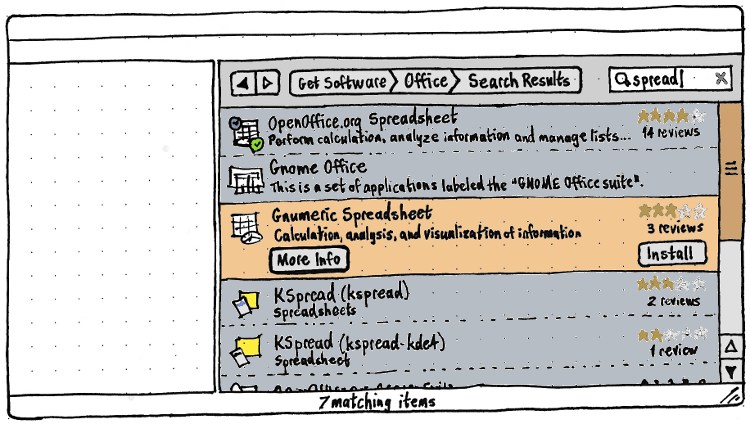 Get Software Office Search Results
spread
OpenOffice.org Spreadsheet
Perform calculation, analyze information and manage lists...
14 reviews
Gnome Office
This is a set of applications labeled the "GNOME Office suite".
Gnumeric Spreadsheet
Calculation, analysis, and visualization of information
3 reviews
More Info
Install
KSpread (kspread)
Spreadsheets
2 reviews
KSpread (kspread-kde4)
Spreadsheet
1 review
7 matching items